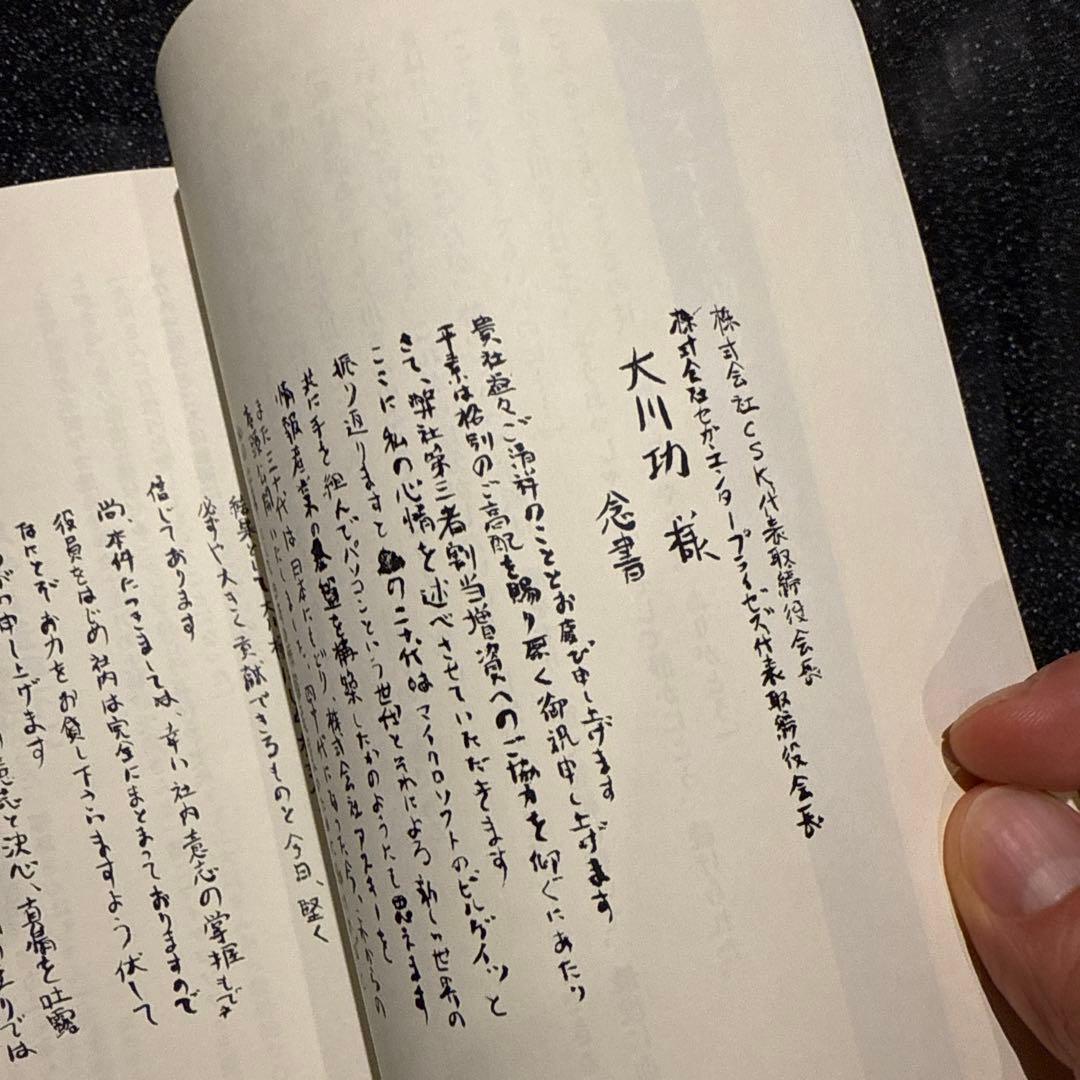 株式会社CSK代表取締役会長
株式会社セガ・エンタープライゼズ代表取締役会長
大川功 様
念書
貴社益々ご清祥のこととお慶び申し上げます
平素は格別のご高配を賜り厚く御礼申し上げます
さて、弊社第三者割当増資へのご協力を仰ぐにあたり
ここに私の心情を述べさせていただきます
振り返りますと の二十代はマイクロソフトのビルゲイツと
共に手を組んでパソコンという世代とそれによる新しい世界の
情報産業の基盤を構築したかのようたて思えます
また三十代は日本にもどり、株式会社アスキーを
店頭公開いたしました
結果として大
必ずや大きく貢献できるものと今日、堅く
信じております
尚、本件につきましては、幸い社内意志の掌握もでき
役員をはじめ社内は完全にまとまっておりますので
なにとぞお力をお貸し下さいますよう伏して
申し上げます
意志と決心、真情を吐露